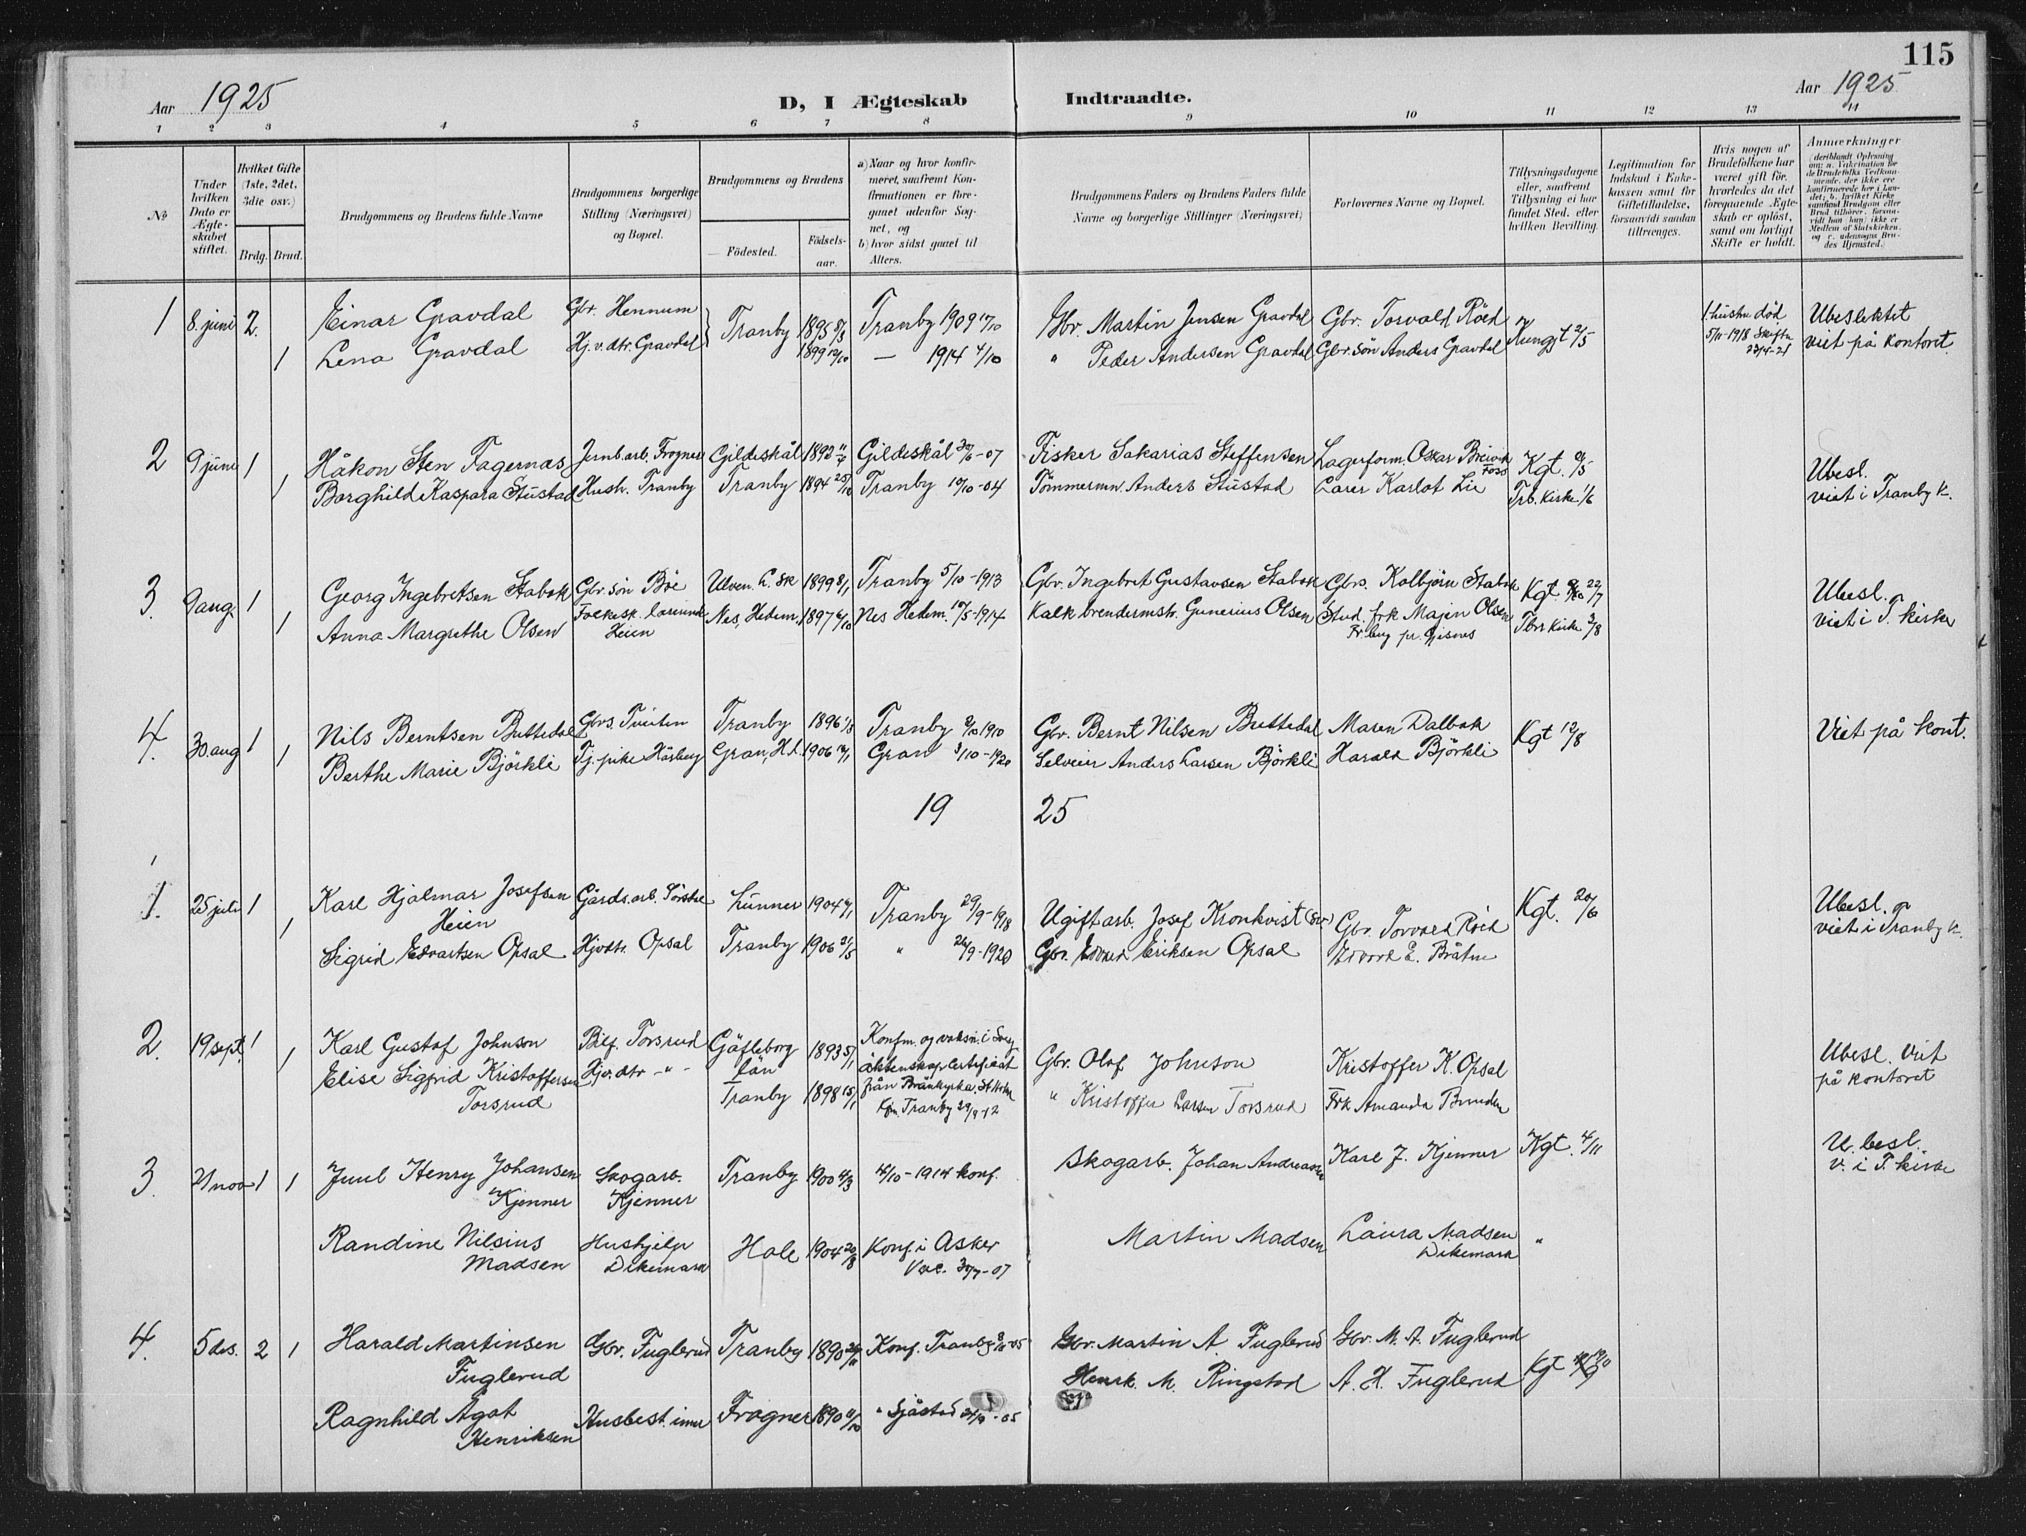 115
Aar 1925
D, I Ægteskab Indtraadte.
Aar 1925
1 2 3 4 5 6 7 8 9 10 11 12 13 14
№
Under hvilken Dato er Ægteskabet stiftet.
Hvilket Gifte (1ste, 2det, 3die osv.)
Brdg. Brud.
Brudgommens og Brudens fulde Navne
Brudgommens borgerlige Stilling (Næringsvei) og Bopæl.
Brudgommens og Brudens
Födested.
Födsels-aar.
a) Naar og hvor konfirmeret, saafremt Konfirmationen er foregaaet udenfor Sognet, og
b) hvor sidst gaaet til Alters.
Brudgommens Faders og Brudens Faders fulde Navne og borgerlige Stillinger (Næringsvei)
Forlovernes Navne og Bopæl.
Tillysningsdagene eller, saafremt Tillysning ei har fundet Sted, efter hvilken Bevilling.
Legitimation for Indskud i Enkekassen samt for Giftetilladelse, forsaavidt saadan tiltrænges.
Hvis nogen af Brudefolkene har været gift för, hvorledes da det foregaaende Ægteskab er oplöst, samt om lovligt Skifte er holdt.
Anmerkninger
1 8. juni 2. Einar Gravdal Gbr. Hennum Tranby 1895 Tranby 1909 Gbr. Martin Jensen Gravdal Gbr. Torvald Röed Kunggt 2/5 1. hustru død 5/11-1918 Skifte 23/4-21 Ubeslektet
1 Lena Gravdal Hj.v.dtr. Gravdal 1899 — 1914 4/10 " Peder Andersen Gravdal Gbr.søn Anders Gravdal viet på kontoret.
2 9 juni 1 Håkon Sten Fagernæs Jernb.arb. Frogner Gildeskål 1893 Gildeskål -07 Fisker Sakarias Steffensen Lagerform. Oskar Breivik Foss Kgt. Ubesl.
1 Borghild Kaspara Stustad Hush. Tranby Tranby 1894 Tranby 10/10-04 Tömmermn. Anders Stustad Lærer Karlot Lie Trb. Kirke 1/6 viet i Tranby K.
3. 9 aug. 1 Georg Ingebretsen Stabæk Gbr. søn Böe Ulven L. Sk 1899 8/1 Tranby 5/10-1913 Gbr. Ingebret Gustavsen Stabæk Gbrs. Kolbjörn Stabæk Kgt. 22/7 Ubesl.
1 Anna Margrethe Olsen Folkesk. lærerinde Heien Nes, Hedem. 1897 Nes Hedem. -1914 Kalkbrendermstr. Gunerius Olsen Stud. frk Majen Olsen Tbr Kirke 2/8 viet i T. kirke
4. 30. aug 1 Nils Berntsen Buttedal Gbrs. Tveiten Tranby 1896 Tranby 1910 Gbr. Bernt Nilsen Buttedal Maren Dalbak Kgt 12/8 Viet på kont.
1 Berthe Marie Björkli Tj. pike Hörberg Gran, H.l. 1906 Gran 3/10-1920 Selveier Anders Larsen Björkli Harald Björkli
19 25
1. 25 juli 1 Karl Hjalmar Josefsen Heien Gårds.arb. Sörstee Lunner 1904 Tranby 29/9-1918 Ugift arb. Josef Kronkvist (Sv) Gbr. Torvald Röed Kgt. 20/6 Ubesl.
1 Sigrid Edvartsen Opsal Hjvdtr. Opsal Tranby 1906 21/5 " 26/9-1920 Gbr. Edvard Eriksen Opsal Edvard E. Bråten viet i Tranby K
2. 19 sept. 1 Karl Gustaf Johnson Bilf. Torsrud Gäfleborg län 1893 5/1 Konfm. og vaksin. i Sverg. äktenskapscertifikat från Brännkyrka St.holm Gbr. Olof Johnson Kristoffer K. Opsal Ubesl. Viet på kontoret
1 Elise Sigfrid Kristoffersen Torsrud Hjv. dtr -"- Tranby 1898 15/1 Kfm. Tranby 29/9-12 " Kristoffer Larsen Torsrud Frk Amanda
3. 21 nov 1 1 Juul Henry Johansen Kjenner Skogarb. Kjenner Tranby 1900 4/3 4/10-1914 konf. Skogarb. Johan Andreassen Karl J. Kjenner Kgt. 4/11 U. besl. v. i T. kirke
Randine Nilsius Madsen Hushjelp Dikemark Hole 1904 20/8 Konf. i Asker Vac. -07 Martin Madsen Laura Madsen Dikemark "
4. 5 des. 2 1 Harald Martinsen Fuglerud Gbr. Fuglerud Tranby 1890 Konf. Tranby -05 Gbr. Martin A. Fuglerud Gbr. M. A. Fuglerud
Ragnhild Agot Henriksen Husbest. inne Frogner 1890 " Sjåstad -05 Henrk. M. Ringstad A. H. Fuglerud Kgt